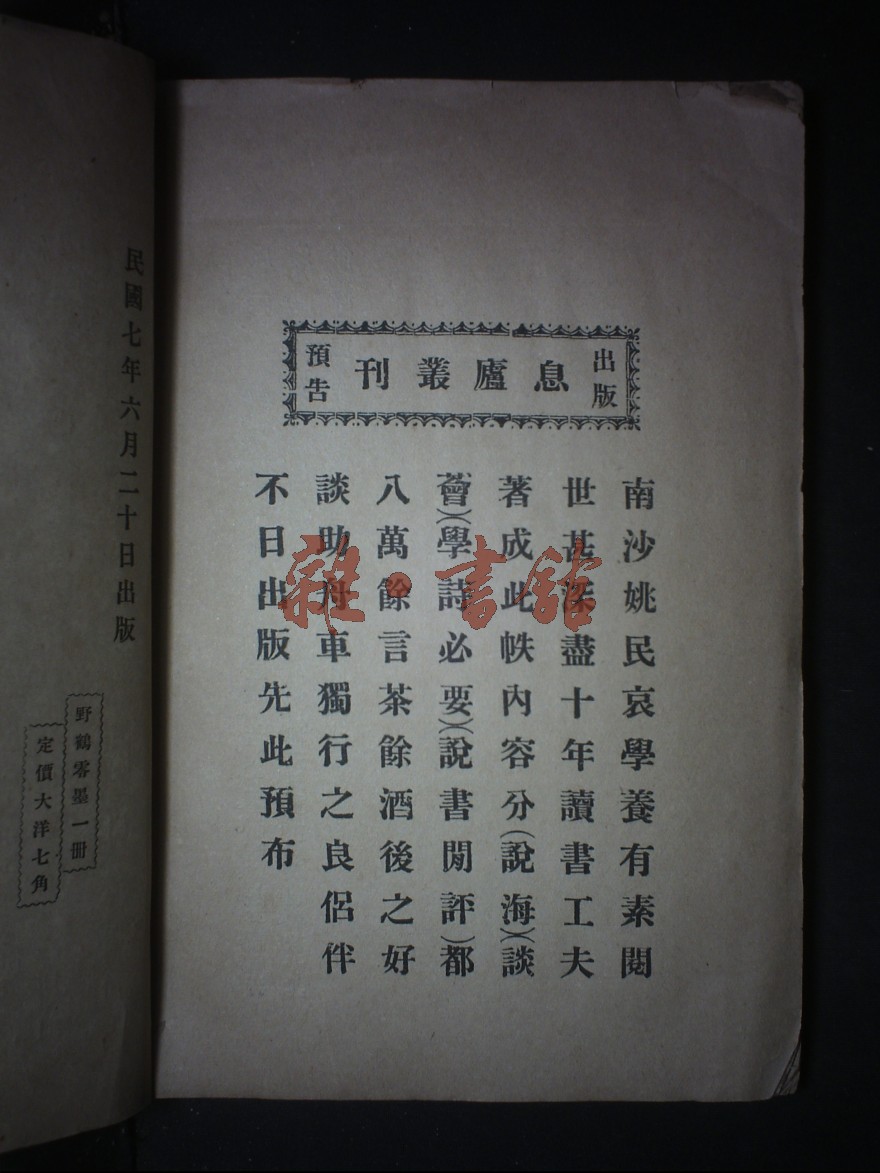 出版
息廬叢刊
預告
南沙姚民哀學養有素閱
世甚深盡十年讀書工夫
著成此帙內容分(說海)(談
薈)(學詩必要)(說書閒評)都
八萬餘言茶餘酒後之好
談助舟車獨行之良侶伴
不日出版先此預布
民國七年六月二十日出版
野鶴零墨一冊
定價大洋七角
雜·書館